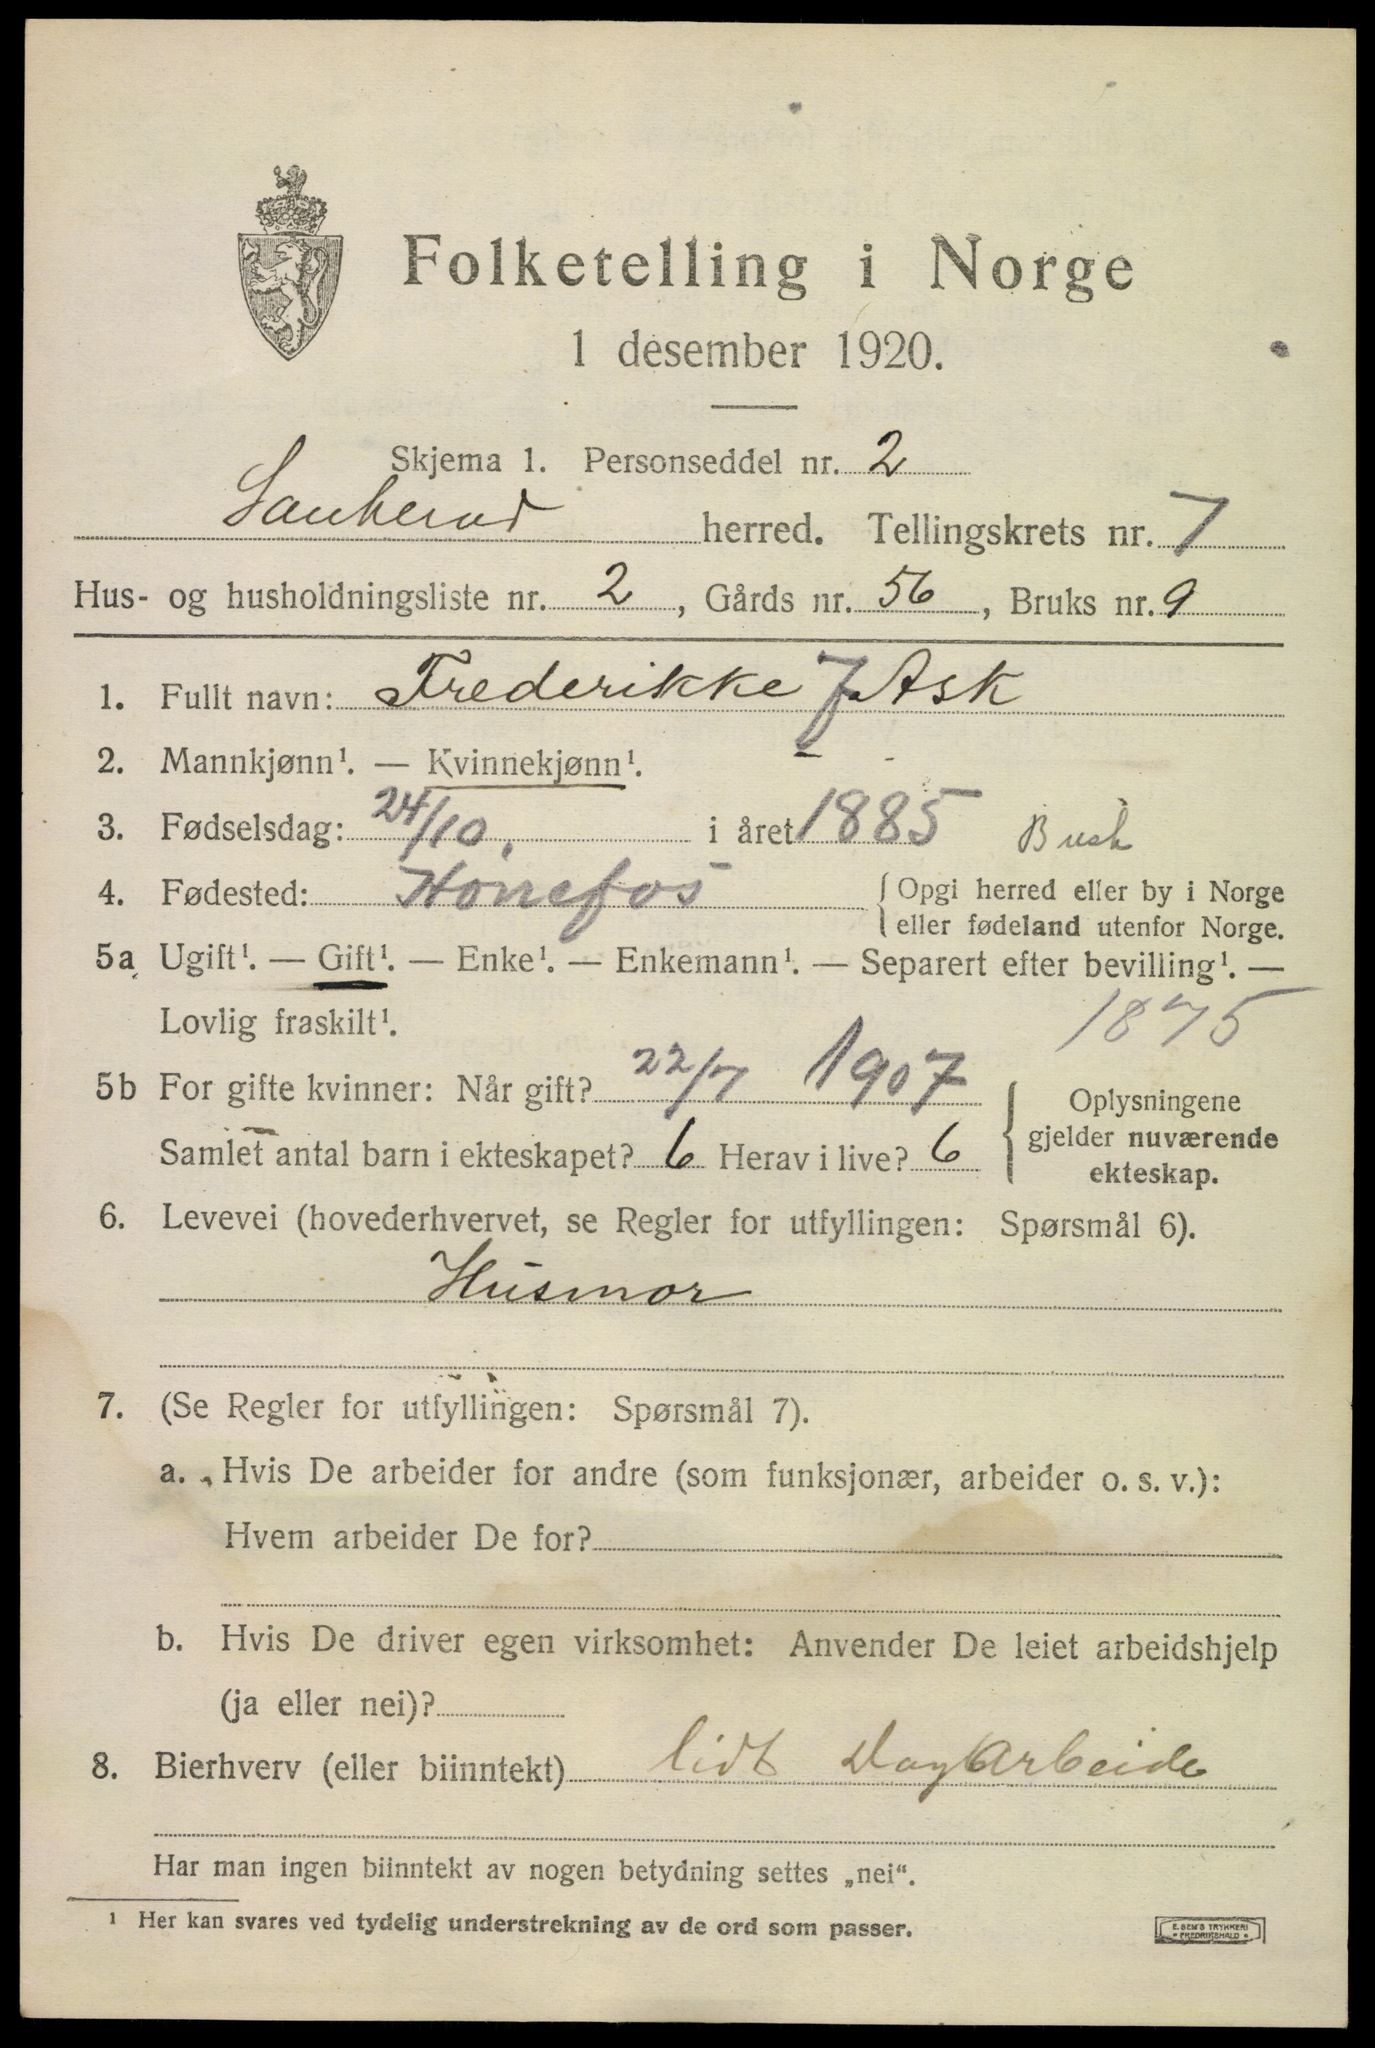 Folketelling i Norge
1 desember 1920.
Skjema 1. Personseddel nr. 2
Sauherad herred. Tellingskrets nr. 7
Hus- og husholdningsliste nr. 2, Gårds nr. 56, Bruks nr. 9
1. Fullt navn: Frederikke J. Ask
2. Mannkjønn¹. — Kvinnekjønn¹.
3. Fødselsdag: 24/10. i året 1885 Busk
4. Fødested: Hönefos {Opgi herred eller by i Norge
eller fødeland utenfor Norge.
5a Ugift¹. — Gift¹. — Enke¹. — Enkemann¹. — Separert efter bevilling¹. —
Lovlig fraskilt¹. 1875
5b For gifte kvinner: Når gift? 22/7 1907
Samlet antal barn i ekteskapet? 6 Herav i live? 6
Oplysningene
gjelder nuværende
ekteskap.
6. Levevei (hovederhvervet, se Regler for utfyllingen: Spørsmål 6).
Husmor
7. (Se Regler for utfyllingen: Spørsmål 7).
a. Hvis De arbeider for andre (som funksjonær, arbeider o. s. v.):
Hvem arbeider De for?
b. Hvis De driver egen virksomhet: Anvender De leiet arbeidshjelp
(ja eller nei)?
8. Bierhverv (eller biinntekt) lidt Dagarbeide
Har man ingen biinntekt av nogen betydning settes „nei“.
¹ Her kan svares ved tydelig understrekning av de ord som passer.
E. SEM'S TRYKKERI
• FREDRIKSHALD •